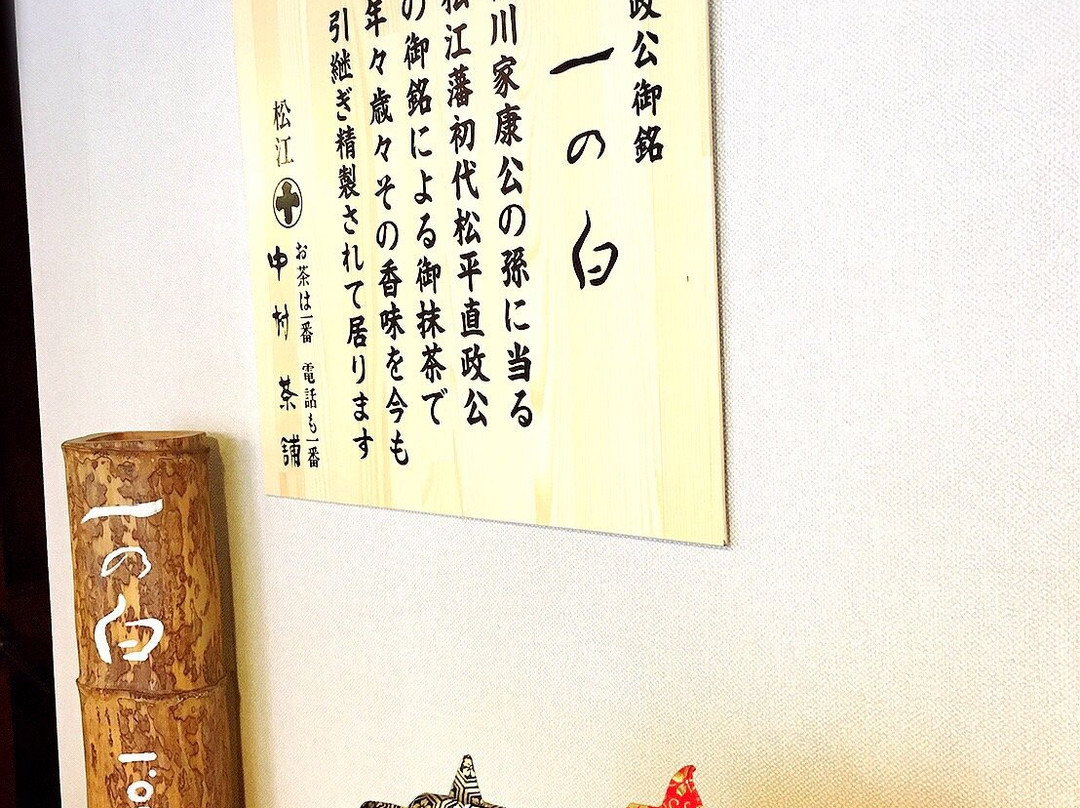 政公御銘
一の白
川家康公の孫に当る
松江藩初代松平直政公
の御銘による御抹茶で
年々歳々その香味を今も
引継ぎ精製されて居ります
お茶は一番 電話も一番
松江 中村茶舗
一の白
一、〇